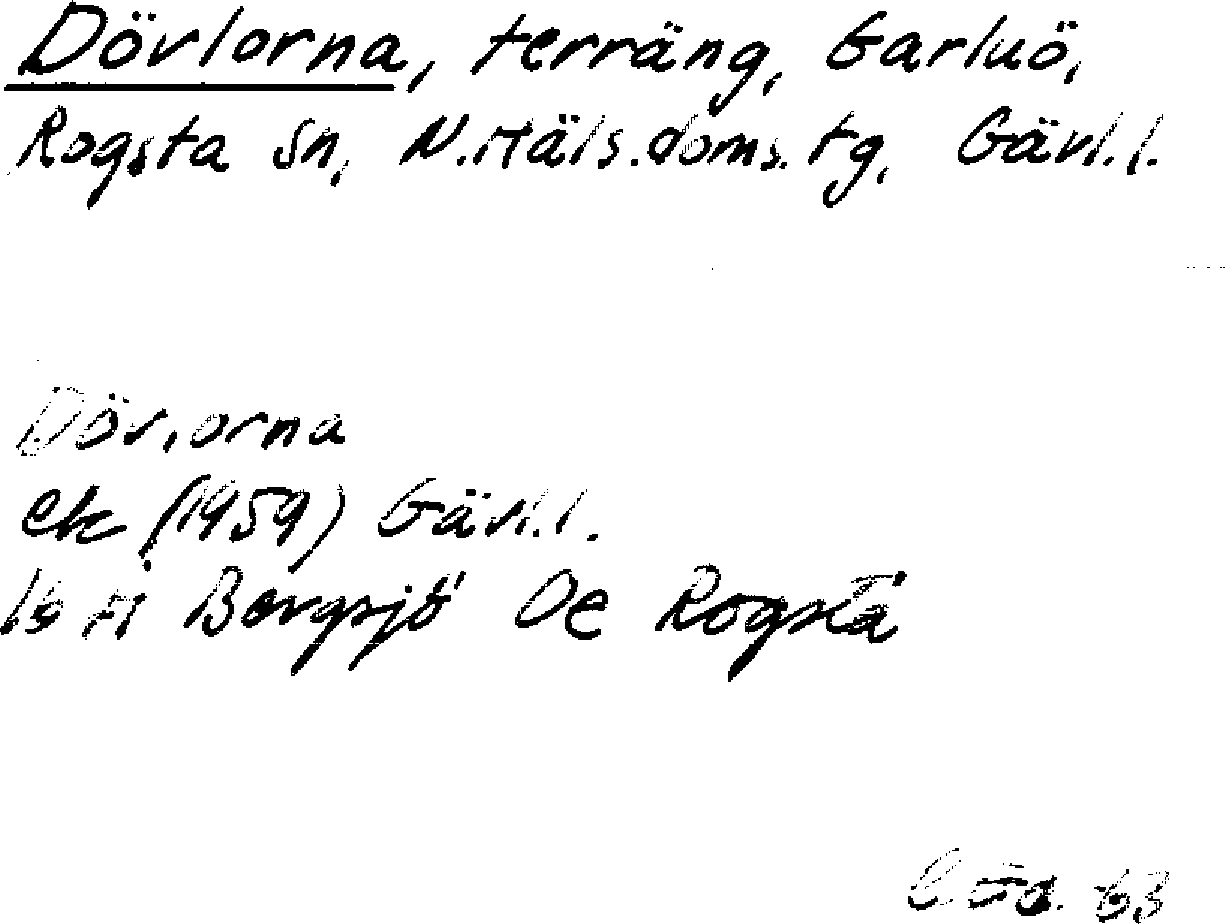 Dövlorna, terräng, Garluö,
Rogsta sn, N.Häls.doms.tg, Gävl.l.
Dövlorna
ek (1959) Gävl.l.
16 H Bergsjö De Rogsta
63